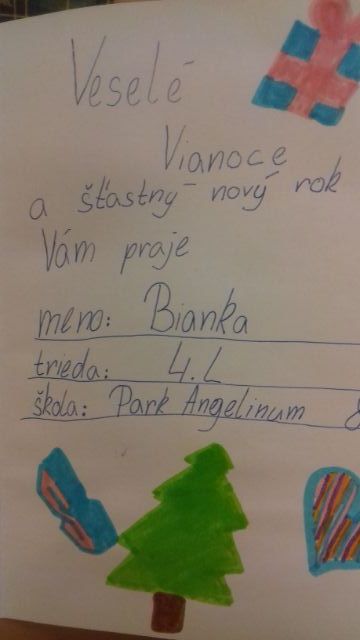 Veselé
Vianoce
a šťastný nový rok
Vám praje
meno: Bianka
trieda: 4.L
škola: Park Angelinum 8